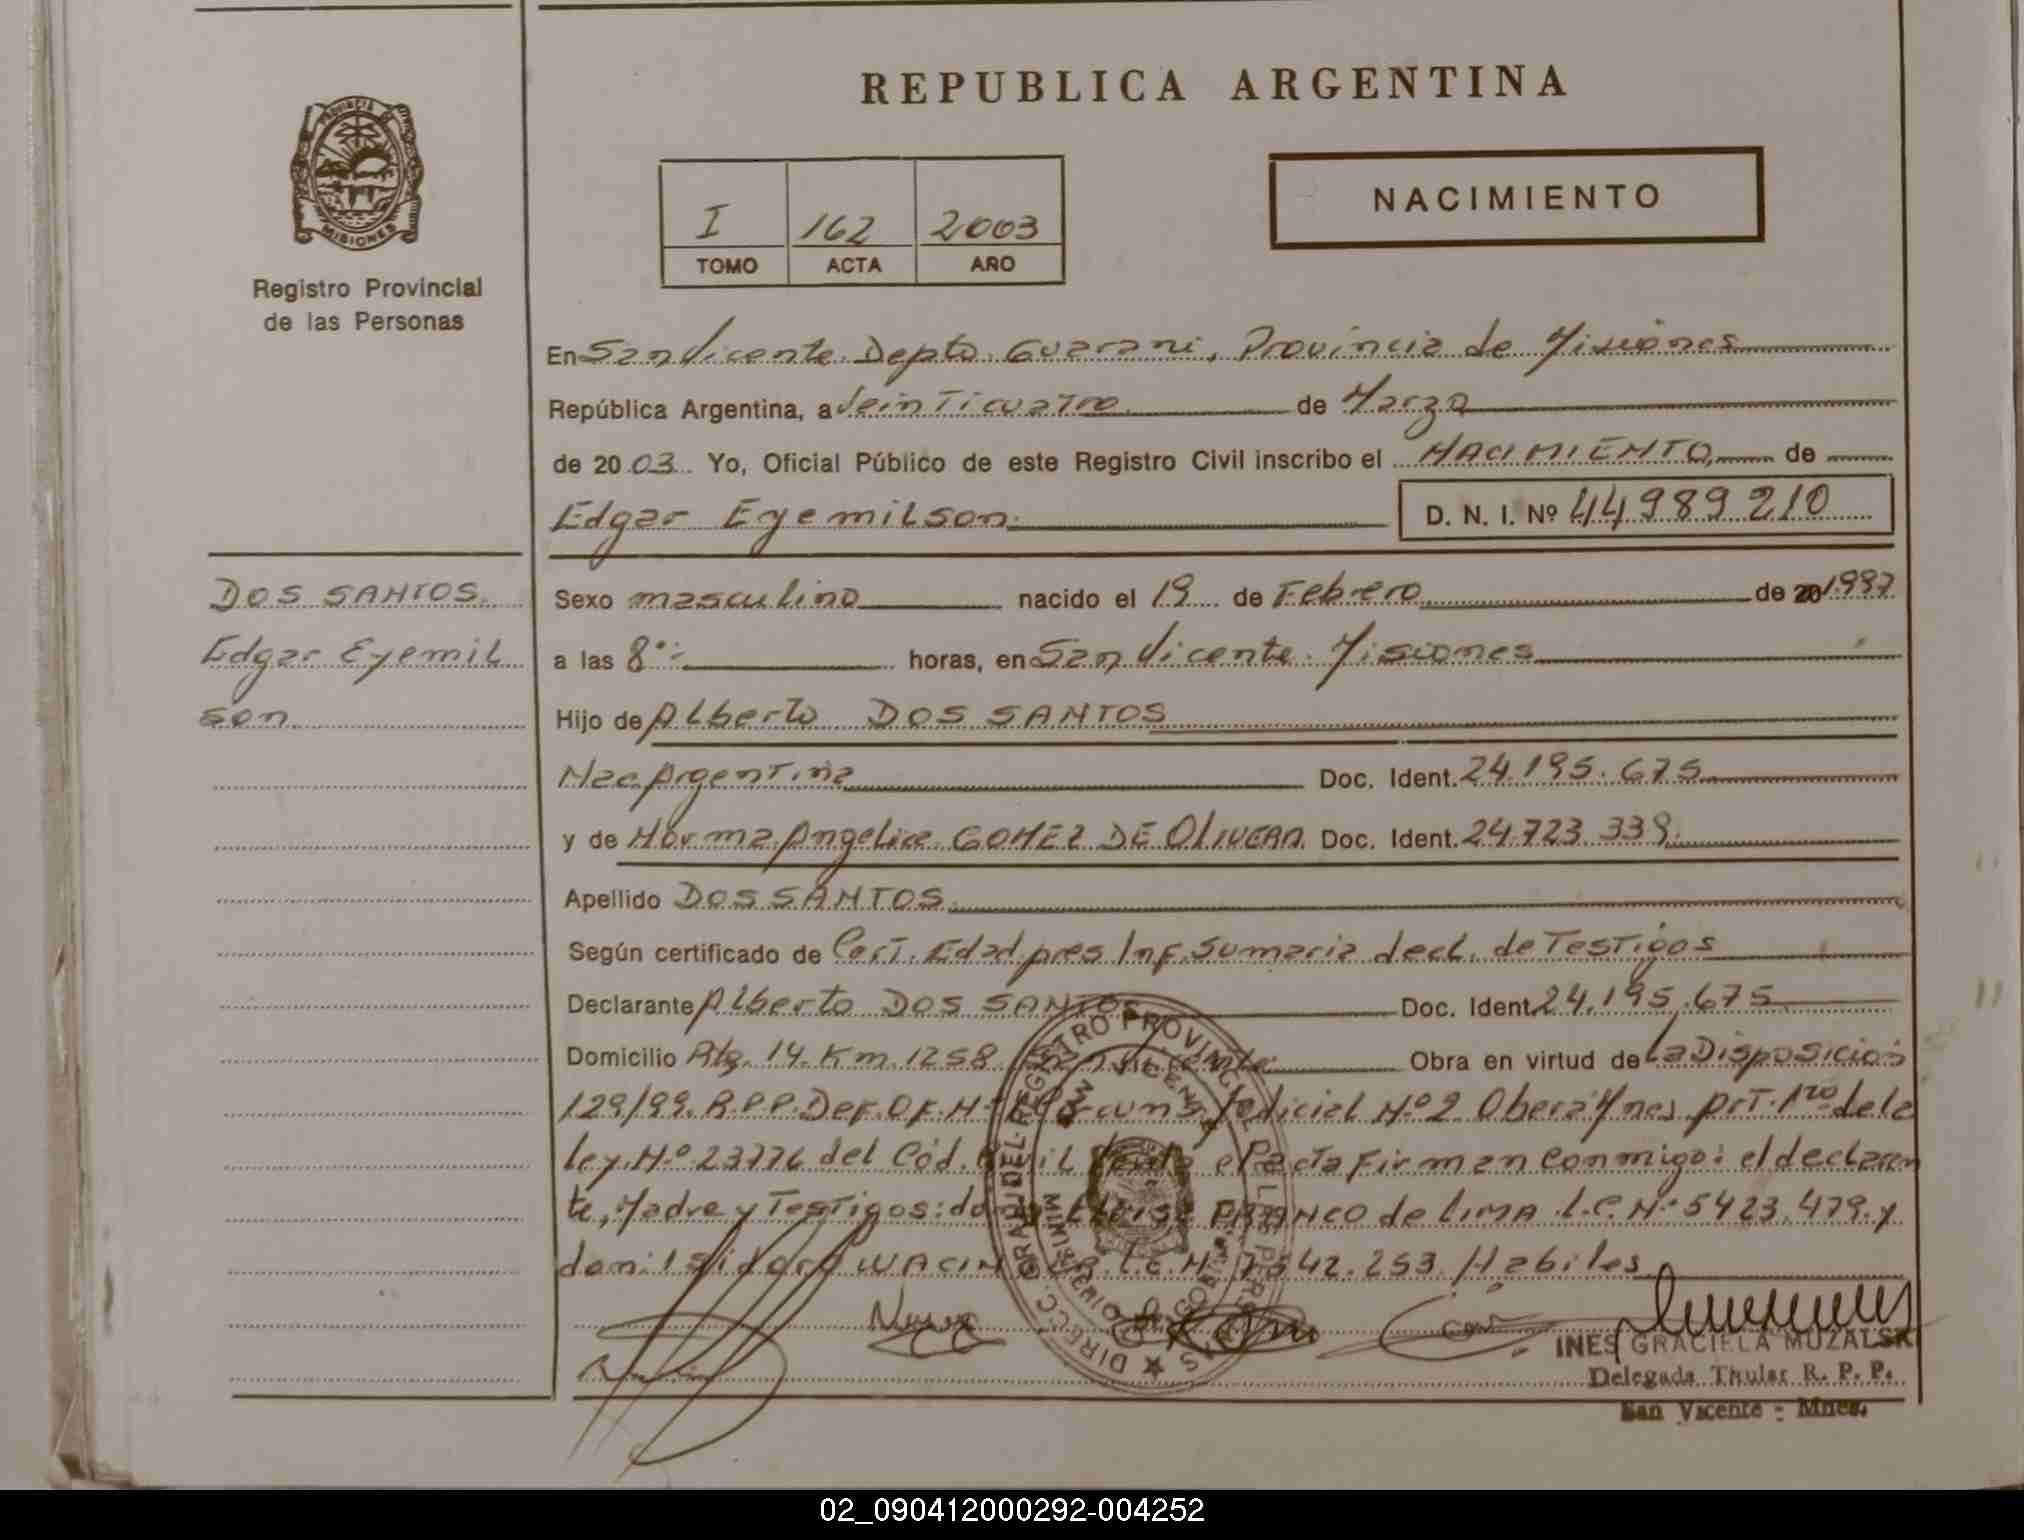 REPUBLICA ARGENTINA
PROVINCIA DE
MISIONES
Registro Provincial
de las Personas
NACIMIENTO
I 162 2003
TOMO ACTA AÑO
En San Vicente Depto Guarani, Provincia de Misiones
República Argentina, a Veinticuatro de Marzo
de 2003 Yo, Oficial Público de este Registro Civil inscribo el NACIMIENTO de
Edgar Eyemilson D. N. I. Nº 44989210
DOS SANTOS
Edgar Eyemil
son
Sexo masculino nacido el 19 de Febrero de 20 1997
a las 8 horas, en San Vicente Misiones
Hijo de Alberto DOS SANTOS
Nac Argentina Doc. Ident. 24.195.675
y de Norma Angelica GOMEZ DE OLIVERA Doc. Ident. 24.723.339
Apellido DOS SANTOS
Según certificado de Cert. Edad pres Inf. Sumaria decl. de Testigos
Declarante Alberto DOS SANTOS Doc. Ident. 24.195.675
Domicilio Rta. 14. Km. 1258 San Vicente Obra en virtud de La Disposición
129/99. R.P.P. Def. Of. Nº Circuns. Judicial Nº 2 Obera Mnes prt. 1ro de la
ley. Nº 23776 del Cód. Civil el acta firman conmigo: el declaran
te, Madre y Testigos: FRANCO de LIMA L.C. Nº 5423.479. y
don: Isidoro L.E. Nº 7542.253. Habiles
DIRECC. GRAL. DEL REGISTRO PROVINCIAL DE LAS PERSONAS
SAN VICENTE
INES GRACIELA MUZALSKI
Delegada Titular R. P. P.
San Vicente - Mnes.
02_090412000292-004252